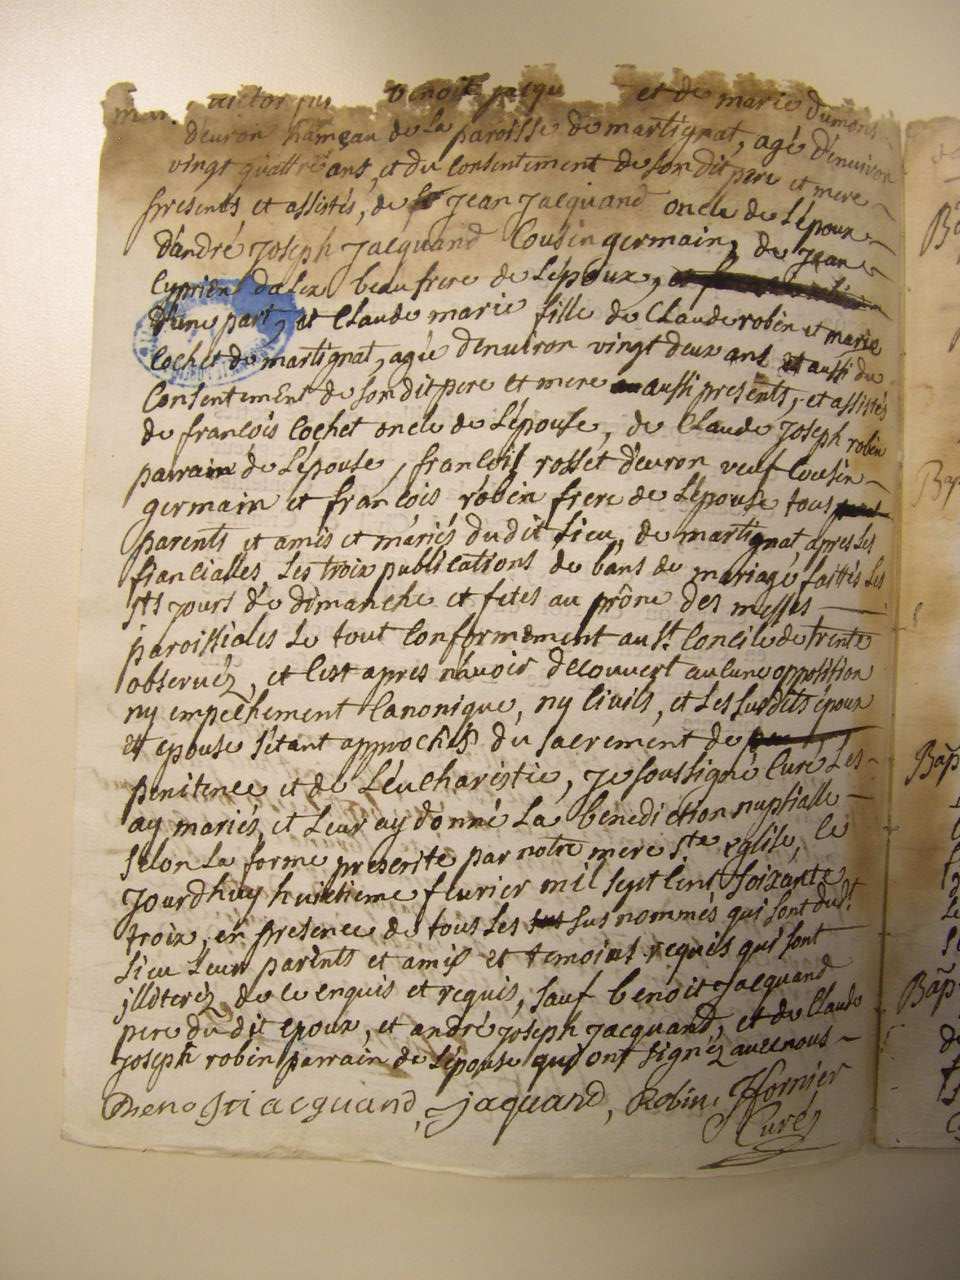 benoit jacqu et de marie dumons
d'evron hameau de la paroisse de martignat, agé d'environ
vingt quattre ans, et du consentement de son dit pere et mere
presents et assistés, de jean jacquand oncle de l'époux
d'andré joseph jacquand cousin germain, de jean
cyprien dalex beaufrere de l'époux,
d'une part, et claude marie fille de claude robin et marie
cochet de martignat, agée d'environ vingt deux ans et aussi du
consentement de son dit pere et mere aussi presents, et assistés
de francois cochet oncle de l'épouse, de claude joseph robin
parrain de l'épouse, francois rosset d'evron veuf cousin
germain et françois robin frere de l'épouse tous
parents et amis et mariés dudit lieu, de martignat, apres les
fiancialles, les troix publications de bans de mariage faittes les
jours de dimanche et fetes au prône des messes
paroissiales le tout conformement au st. concile de trente
observéz, et c'est apres n'avoir decouvert aucune opposition
ny empechement canonique, ny civils, et les susdits époux
et epouse s'étant approchés du sacrement de
penitence et de l'eucharistie, je soussigné curé les
ay mariés, et leur ay donné la bénédiction nuptialle
selon la forme prescrite par notre mere ste eglise, le
jourdhuy huictieme fevrier mil sept cent soixante
troix, en presence de tous les susnommés qui sont dudt.
lieu leurs parents et amis et temoins requis qui sont
illiterez de ce enquis et requis, sauf benoit jacquand
pere du dit epoux, et andré joseph jacquand, et de claude
joseph robin parrain de l'épouse qui ont signéz avec nous
Benoit iacquand, jaquand, Robin, fornier
Curé